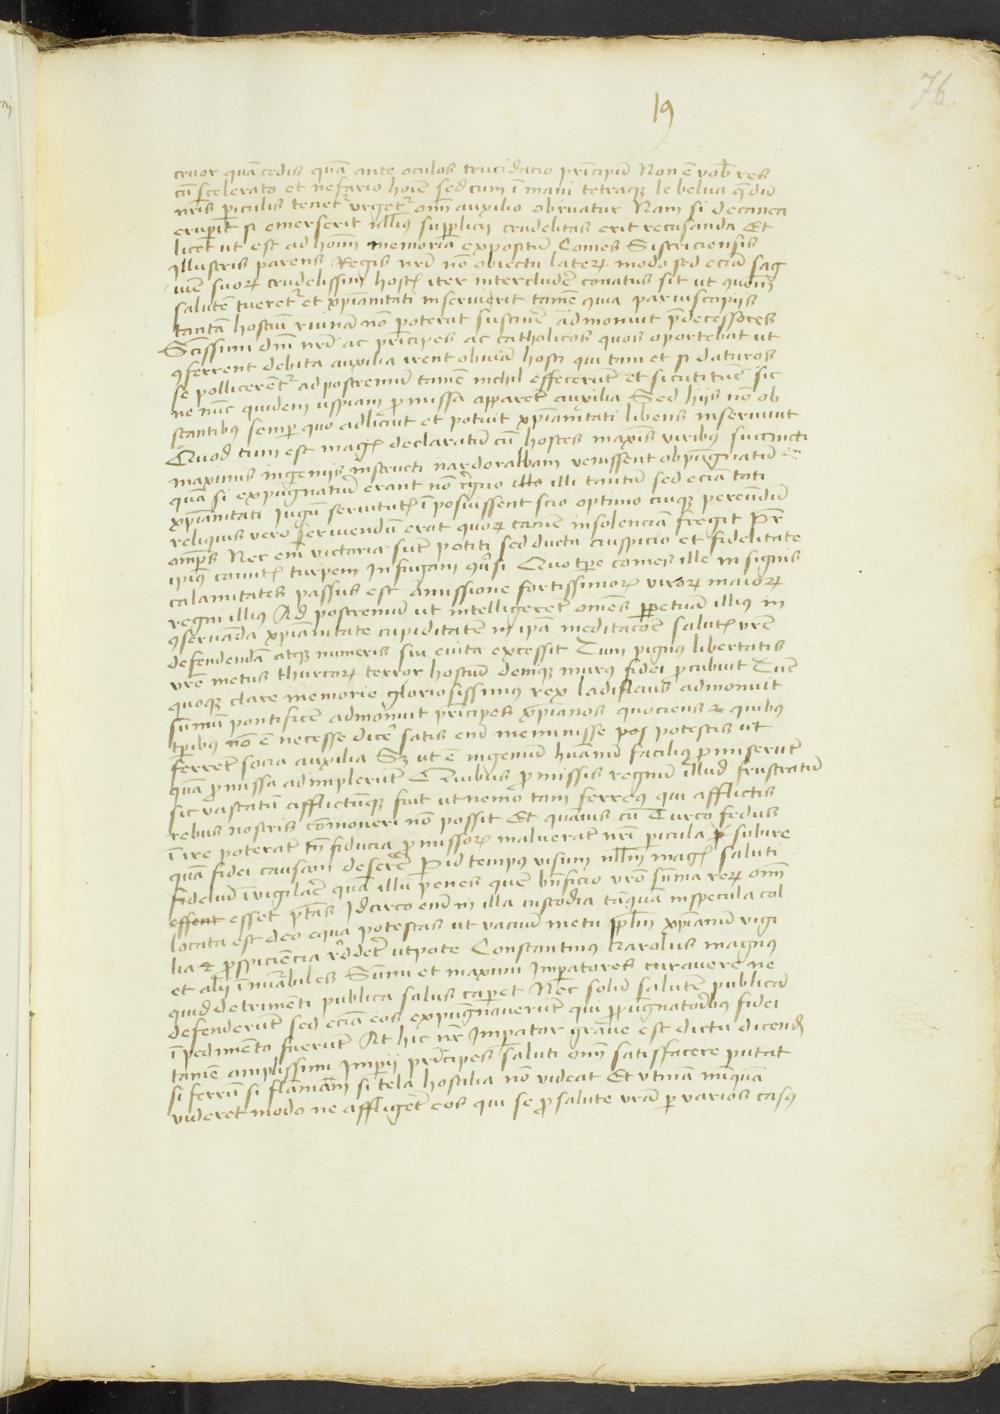 19
76
cruor quā cedis quā ante oculos trucidacio prīcipiū Non ē vob̄ res
cū scelerato et nefario hoīe sed cum īmani tetraqꝫ le belua q̄ diū
nrīs periculis tenet᷑ vrget᷑ om̄i auxilio obruatur Nam si de cauea
eruperit si emerserit nlliꝰ supplicij crudelitas erit recusanda Et
licet ut est ad hom̄ memoria expositū Comes Sistriciensis
Illustris parens Regis nrī nō obiectu lateꝝ modo sed eciā sag
uīē suoꝝ crudelissim̄ hostꝭ iter intercludē conatus sit ut quoīn
salutē tueret᷑ et xp̄ianitati inseruierit tamē quia paruis copijs
tantā hostiū ruinā nō poterat sustinē admonuit p̄decessores
Sctissimi dnī nrī ac prīcipes ac catholicos quos oportebat ut
ꝯferrent debita auxilia irent obuiā hosti qui tam et si daturos
se pollicerent᷑ ad postremū tamē nichil effecerūt et sicuti tūc sic
ne nūc quidem uspiam ꝓmissa apparēt auxilia Sed hijs nō ob
stantibꝰ semper quo adlicuit et potuit xp̄ianitati libens inseruiuit
Quod tum est magꝭ declaratū cū hostes maxīs viribꝰ succincti
maximis ingenijs instructi nardoralbam venissent obpugnatū
quā si expugnatum erant nō rēgno illo illi tantum sed eciā toti
xp̄ianitati Jugū seruitutꝭ īposuissent scio optimo cuiqꝫ pereūdū
reliquis vero seruiendū erat quoꝝ tamē insolenciā fregit Pr̄
omp̄s Nec em̄ victoria sūt potiti sed ductu auspicio et fidelitate
ip̄iꝰ comitꝭ turpem in fugam q̄si Quo tꝑe comes ille insignis
calamitates passus est amissione fortissimoꝝ viroꝝ maioꝝ
regni illiꝰ Ad postremū ut intelligeret᷑ om̄es perpetuā illiꝰ in
ꝯseruāda xp̄ianitate cupiditatē in ip̄a meditacōe salutꝭ vrē
defendendā atqꝫ numeris sui e vita excessit Tum pignꝰ libertatis
vrē metus thurcoꝝ terror hostiū deniqꝫ murꝰ fidei ꝓcubuit Tūc
quoqꝫ clare memorie gloriosissimꝰ rex ladislaus admonuit
sūmū pontificē admonuit prīcipes xp̄ianos quociens et quibꝰ
tꝑibus nō ē necesse dicē satis em̄ meminisse vos potestis ut
ferret᷑ socia auxilia Sꝫ ut ē ingeniū huānū faciliꝰ ꝓmiserūt
quā ꝓmissa adimplerūt Quibus ꝓmissis regnū illud frustratū
sic vastatū afflictūqꝫ fuit ut nemo tam ferreꝰ qui afflictis
rebus nostris cōmoueri nō possit Et quāuis cū Turco fedus
īire poterat tn̄ fiducia ꝓmissoꝝ maluerat nrī pericula subire
quā fidei causam deserē Per id tempus visum nllm̄ magꝭ saluti
fideliū īvigilare quā illū penes quē bn̄ficio vrō sūma reꝝ om̄i
essent esset ptās Idcirco em̄ in illa custodia tāquā in specula col
locata est deo equa potestas ut vacuū metu pplm̄ xp̄ianū vigi
lia et ꝓspiciencia rēddet᷑ utpote Constantinꝰ karolus magnꝰ
et alij īnūabiles Sūmi et maximi Imperatores curauere ne
quid detrimenti publica salus caperet Nec solū salutē publicā
defenderūt sed eciā eos expugnauerūt qui ꝓpugnatoribus fidei
īpedimento fuerūt At hic nr̄ Imperator graue est dictu dicend̄
tamē amplissimi Imperij prīceps saluti om̄i satisfacere putat
si ferrū si flāmam si tela hostilia nō videat Et vtinā nūquā
videret modo ne affligēt eos qui se ꝓ salute vrā per varios casꝰ